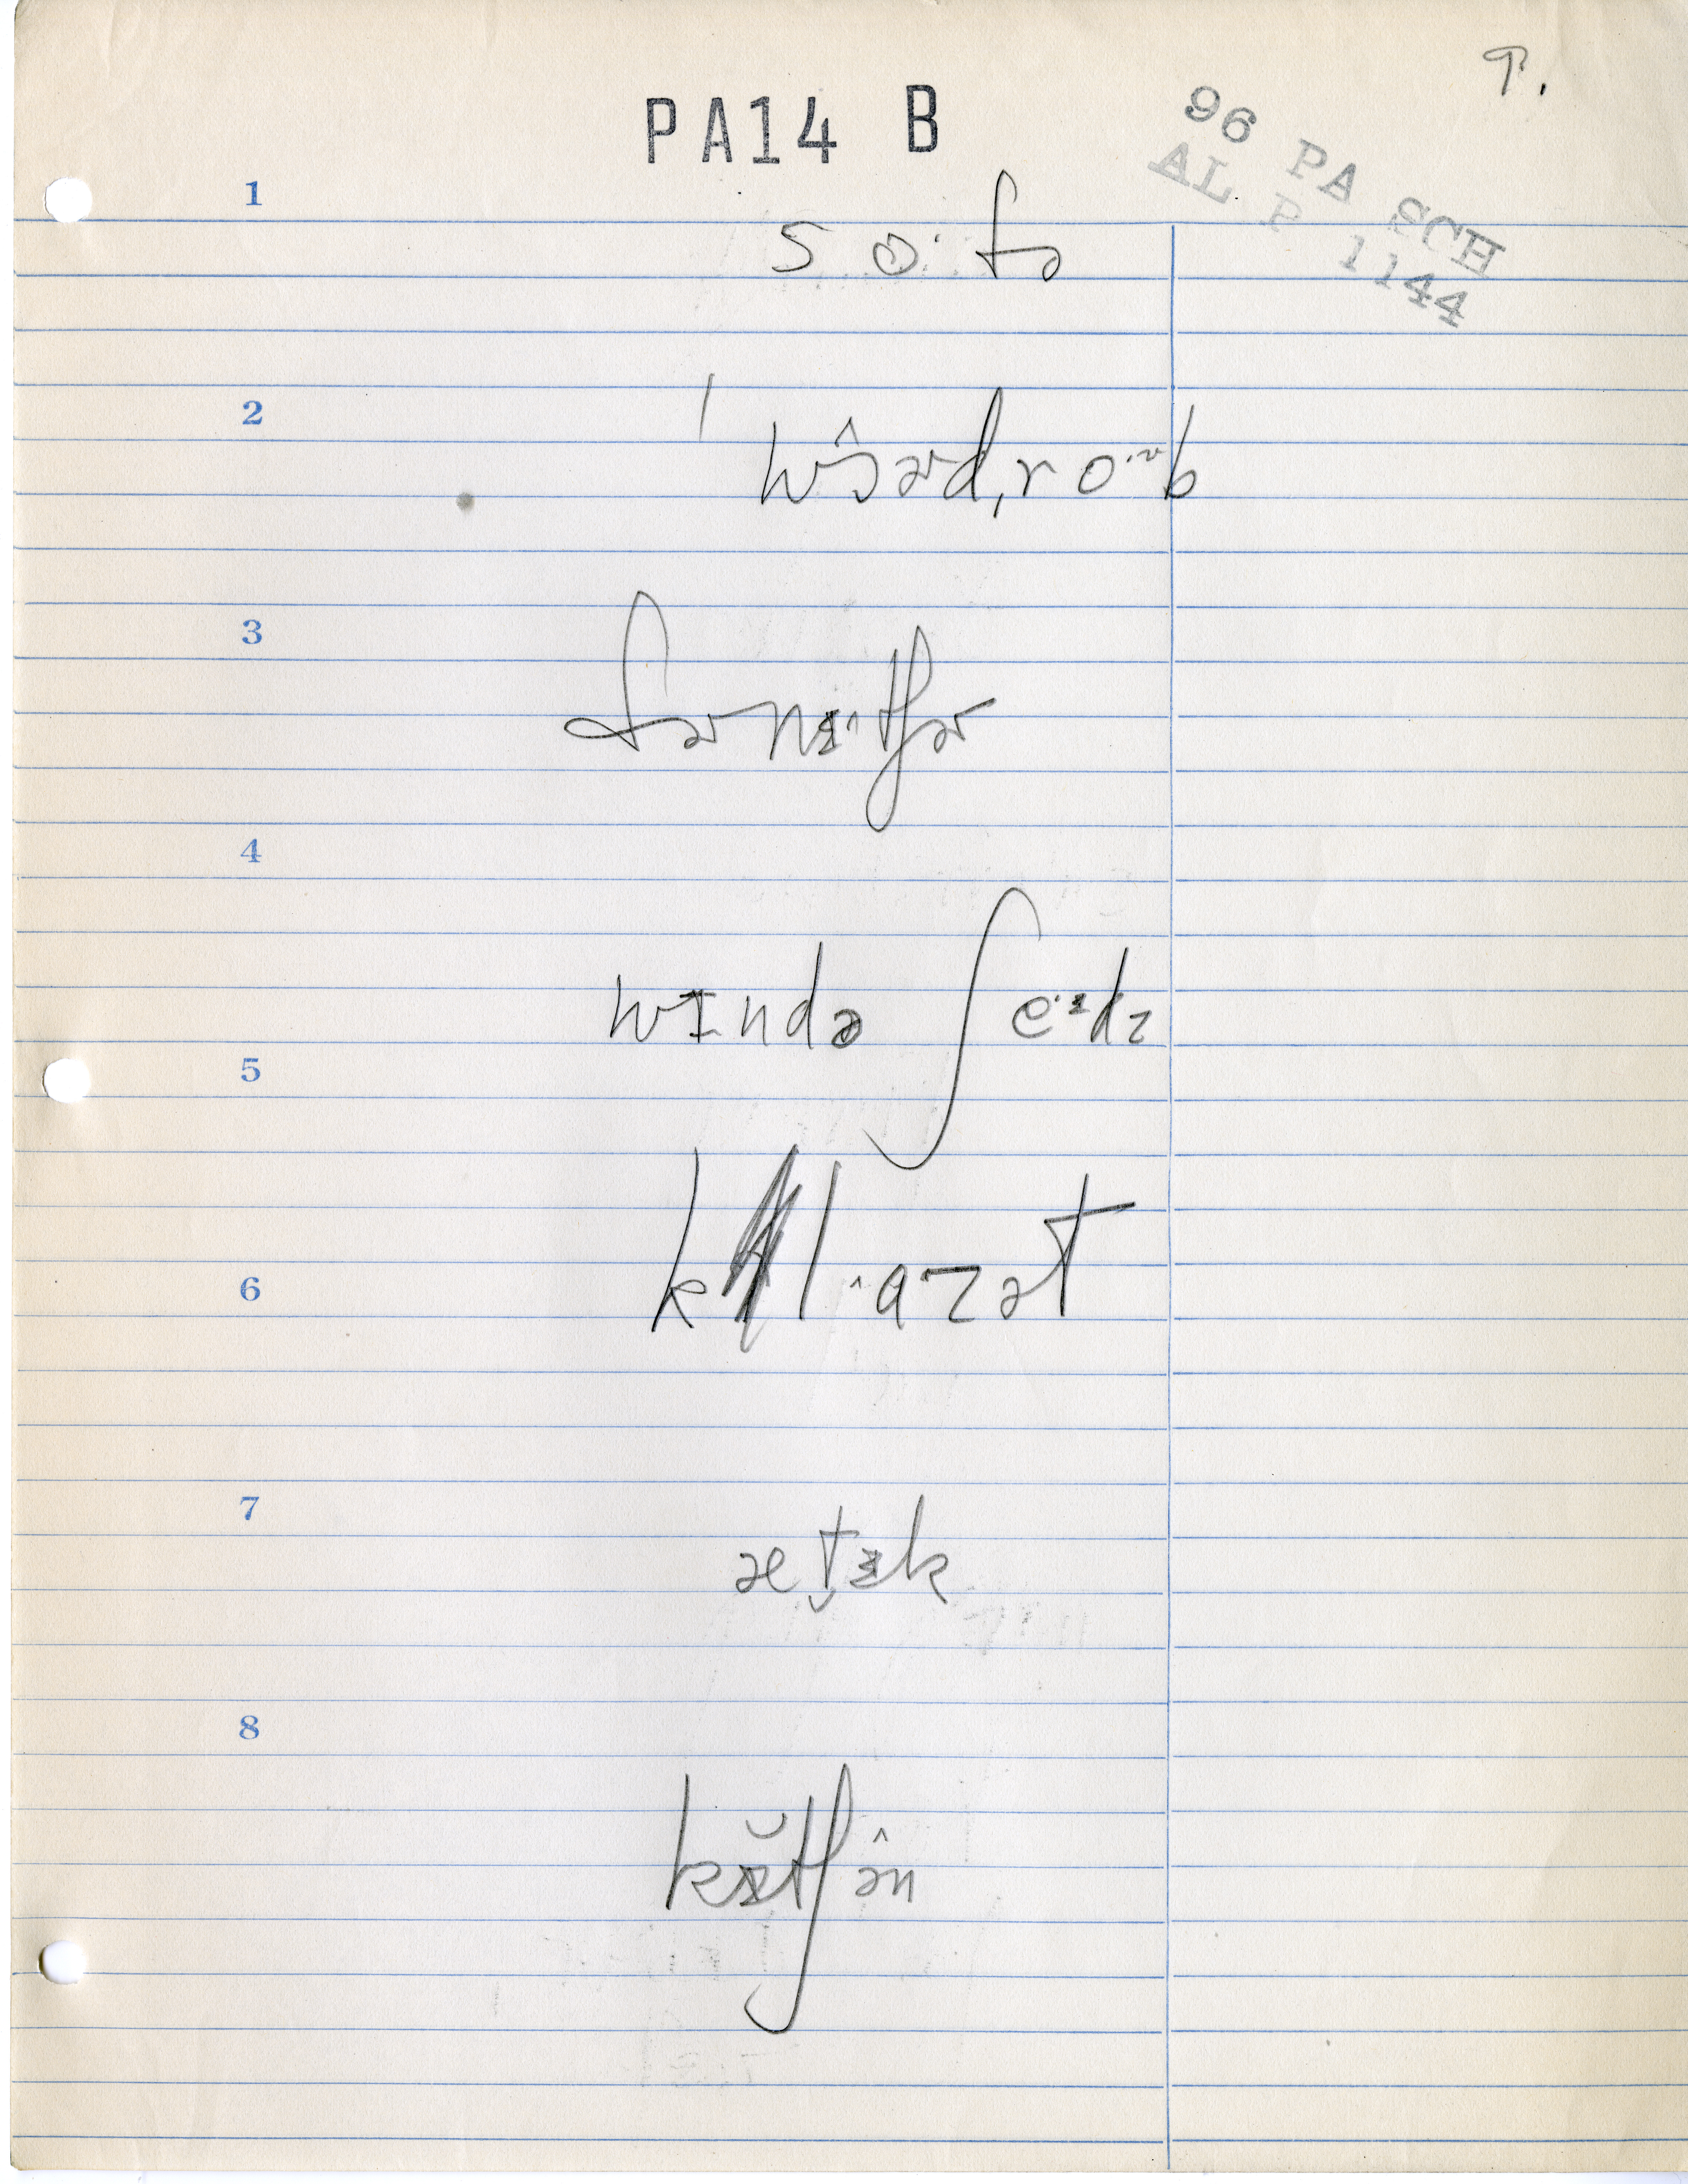 P.
PA14 B
96 PA SCH
AL P 1144
1
so·fə
2
ˈwɔ̂ɚdˌro·ᵕb
3
fɚnɪ·^tʃɚ
4
wɪndə ʃe·ᶤdz
5
kl·^ɑzət
6
7
æt̬ɪk
8
kɪ̆tʃə̂n